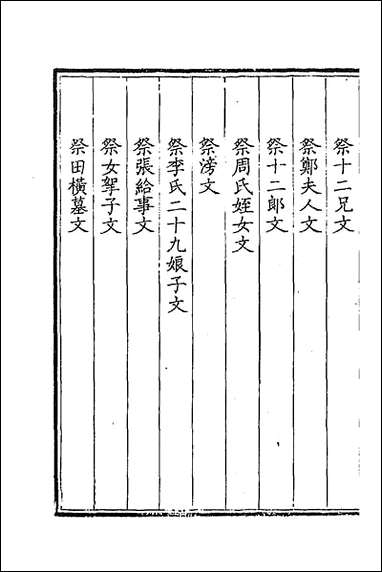 祭十二兄文
祭鄭夫人文
祭十二郎文
祭周氏姪女文
祭滂文
祭李氏二十九娘子文
祭張給事文
祭女挐子文
祭田橫墓文